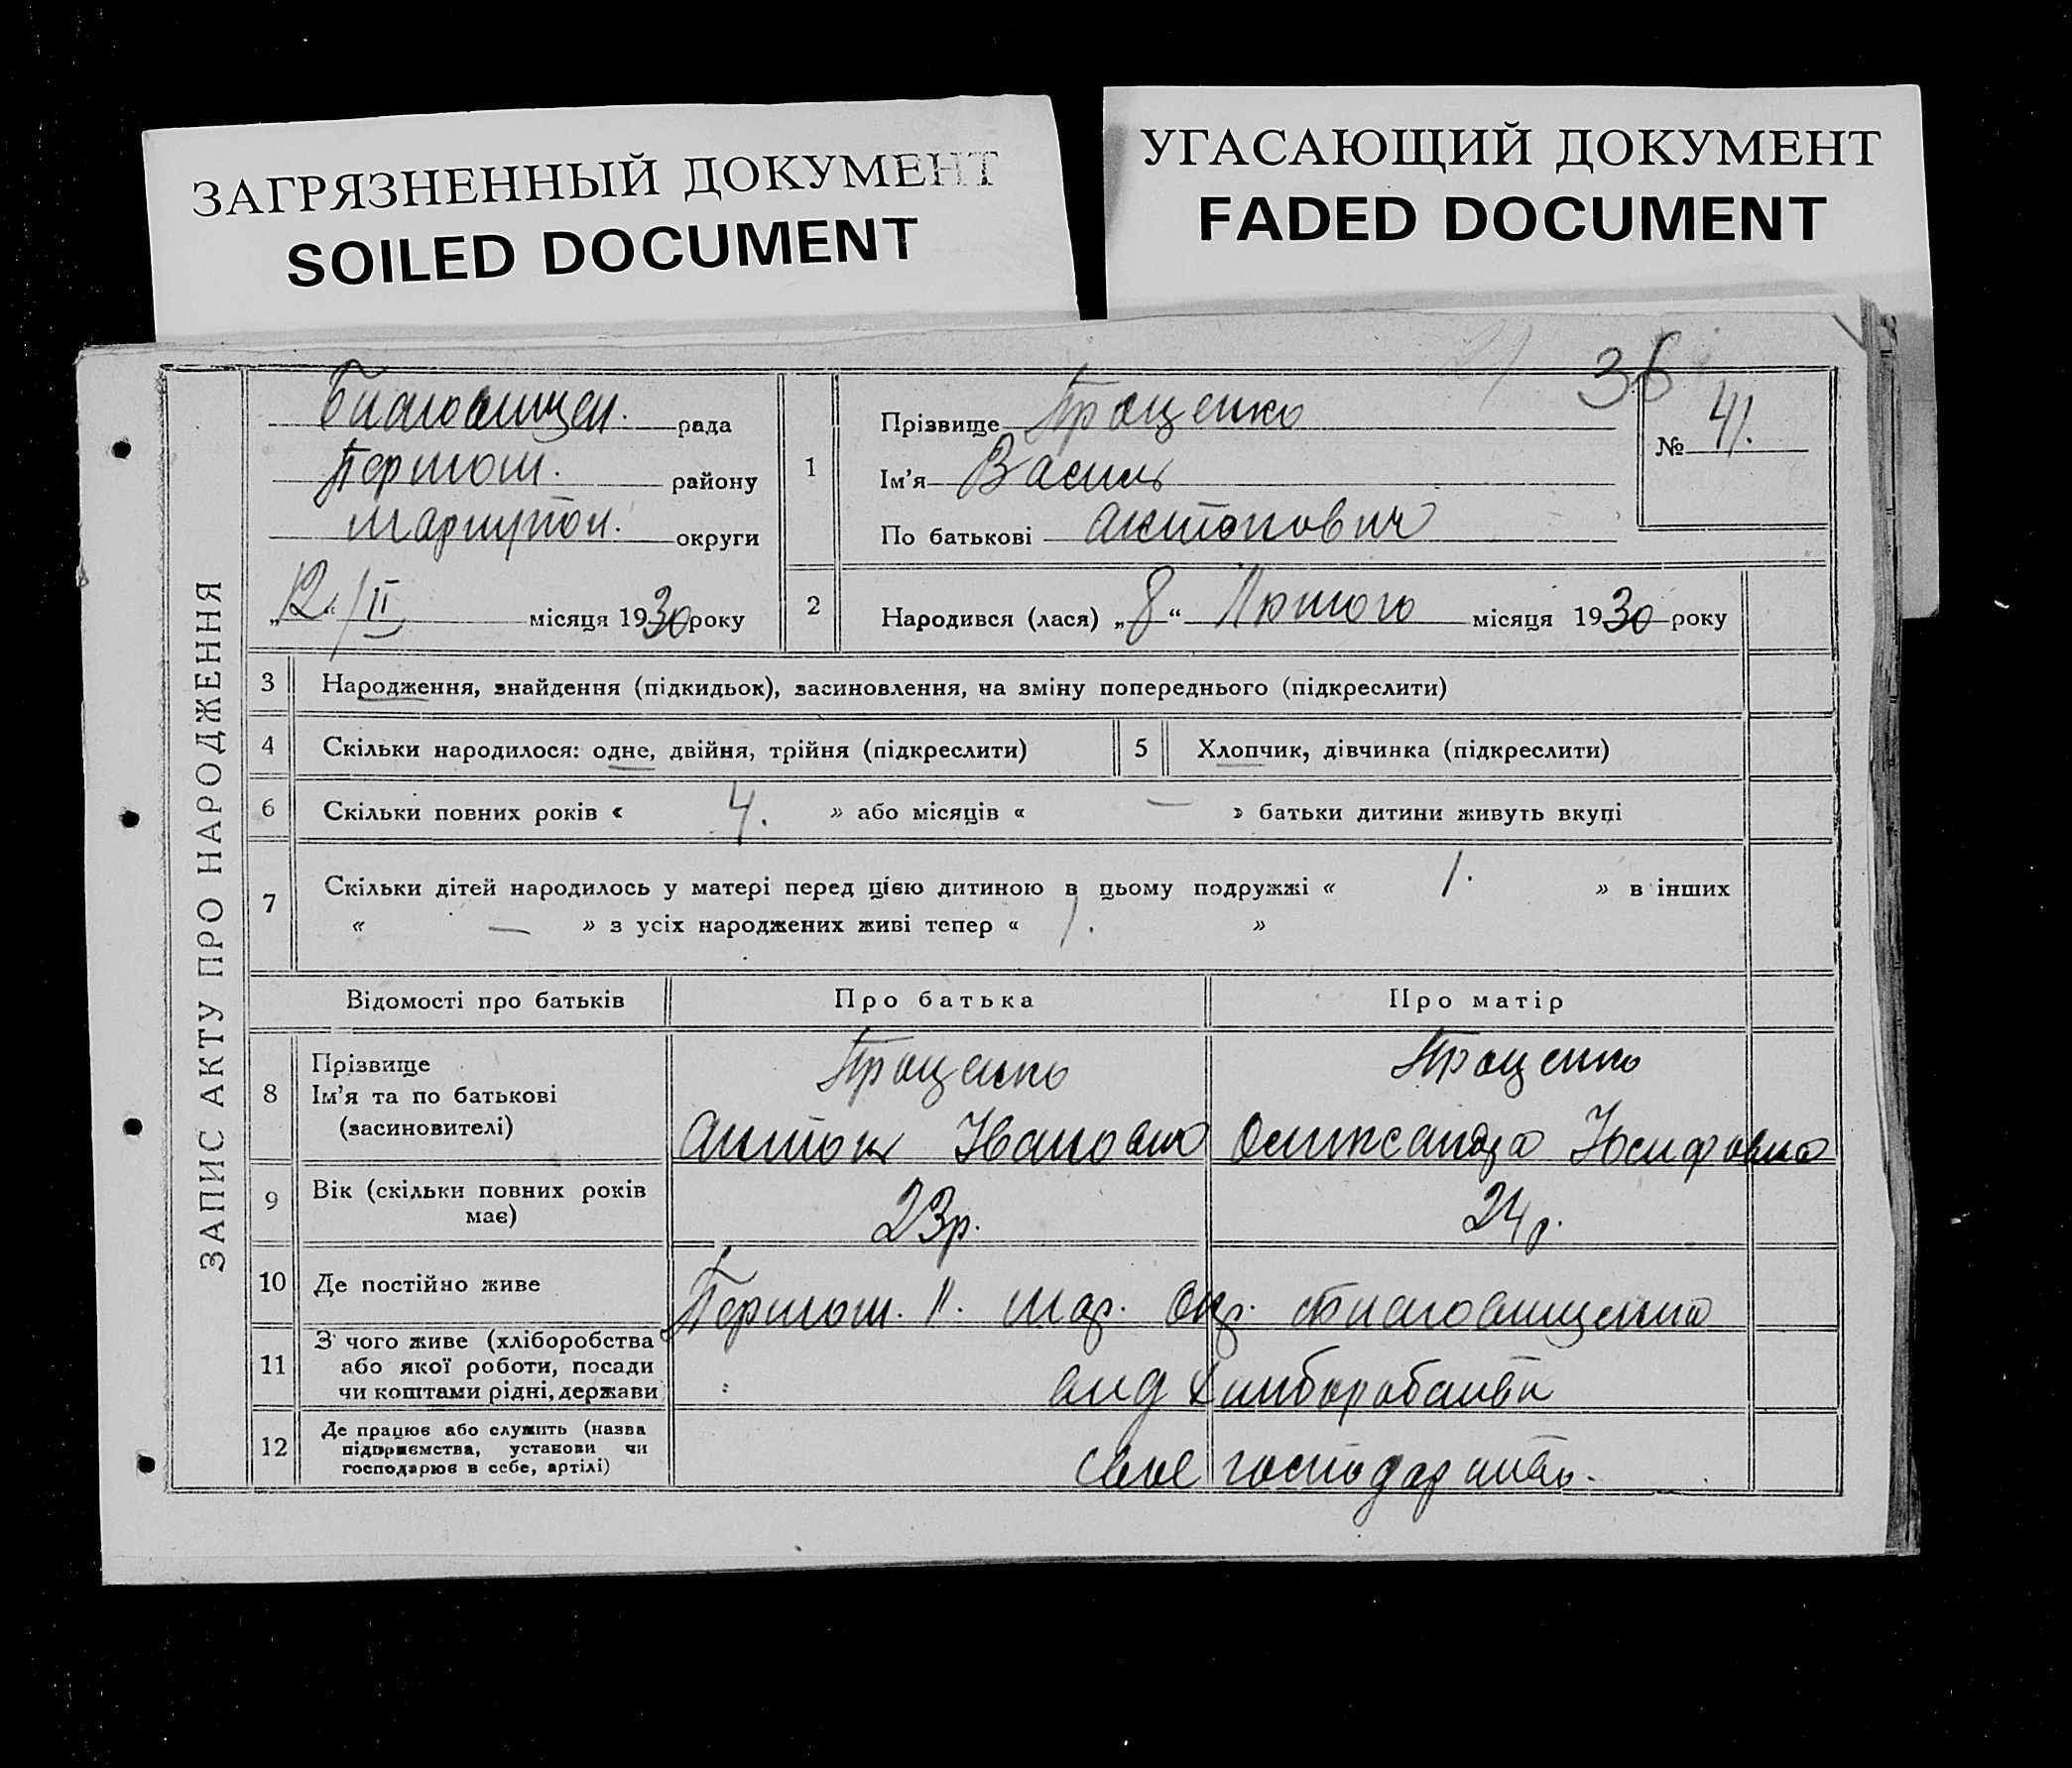 ЗАГРЯЗНЕННЫЙ ДОКУМЕНТ
SOILED DOCUMENT
УГАСАЮЩИЙ ДОКУМЕНТ
FADED DOCUMENT
36
ЗАПИС АКТУ ПРО НАРОДЖЕННЯ
Благовищен. рада
району
Маріупол. округи
„12“/II місяця 1930 року
1
Прізвище Проценко
Ім'я Василь
По батькові Антонович
№ 41.
2 Народився (лася) „8“ Лютого місяця 1930 року
3 Народження, знайдення (підкидьок), засиновлення, на зміну попереднього (підкреслити)
4 Скільки народилося: одне, двійня, трійня (підкреслити) 5 Хлопчик, дівчинка (підкреслити)
6 Скільки повних років « 4. » або місяців « — » батьки дитини живуть вкупі
7 Скільки дітей народилось у матері перед цією дитиною в цьому подружжі « 1. » в інших
« — » з усіх народжених живі тепер « 1. »
Відомості про батьків Про батька Про матір
8 Прізвище
Ім'я та по батькові
(засиновителі)
Проценко
Антон Іванович
Проценко
Олександра Йосифовна
9 Вік (скільки повних років
має)
23р.
24р.
10 Де постійно живе
Мар. Окр. Благовищенка
11 З чого живе (хліборобства
або якої роботи, посади
чи коштами рідні, держави
від Хліборобства
12 Де працює або служить (назва
підприємства, установи чи
господарює в себе, артілі)
своє господарство.